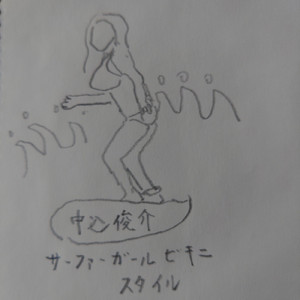 中込俊介
サーファーガール ビキニ
スタイル